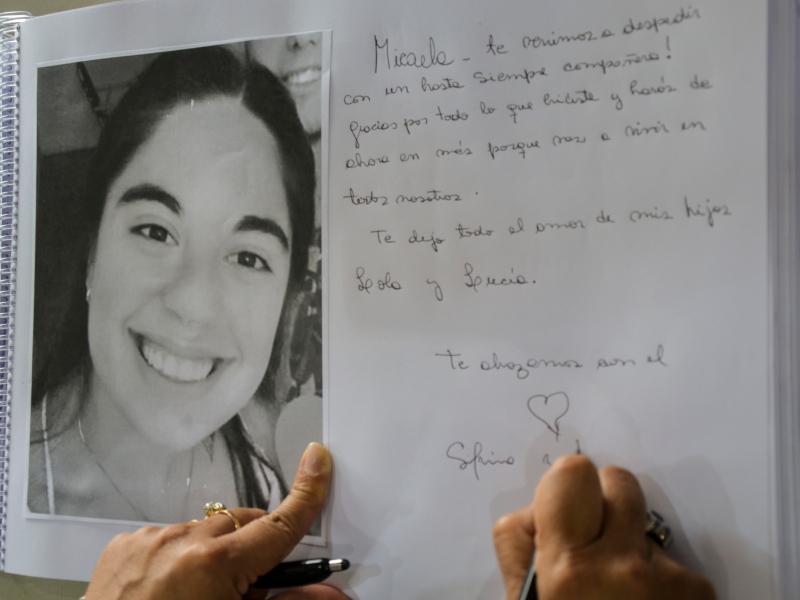 Micaela - te venimos a despedir
con un hasta siempre compañera!
gracias por todo lo que hiciste y harás de
ahora en más porque vas a vivir en
todos nosotros.
Te dejo todo el amor de mis hijas
Lola y Lucía.
Te abrazamos con el